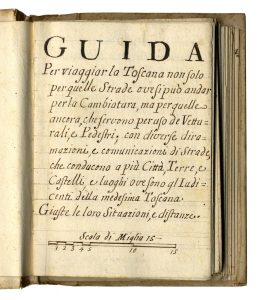 GUIDA
Per viaggiar la Toscana non solo
per quelle Strade ove si può andar
per la Cambiatura, ma per quelle
ancora, che servono per uso de Vettu-
rali, e Pedestri, con diverse dira-
mazioni, e comunicazione di Strade,
che conducono a più Città, Terre, e
Castelli, e luoghi ove sono gl' Iusdi-
centi, della medesima Toscana
Giuste le loro Situazioni, e distanze.
Scala di Miglia 15
1 2 3 4 5 10 15